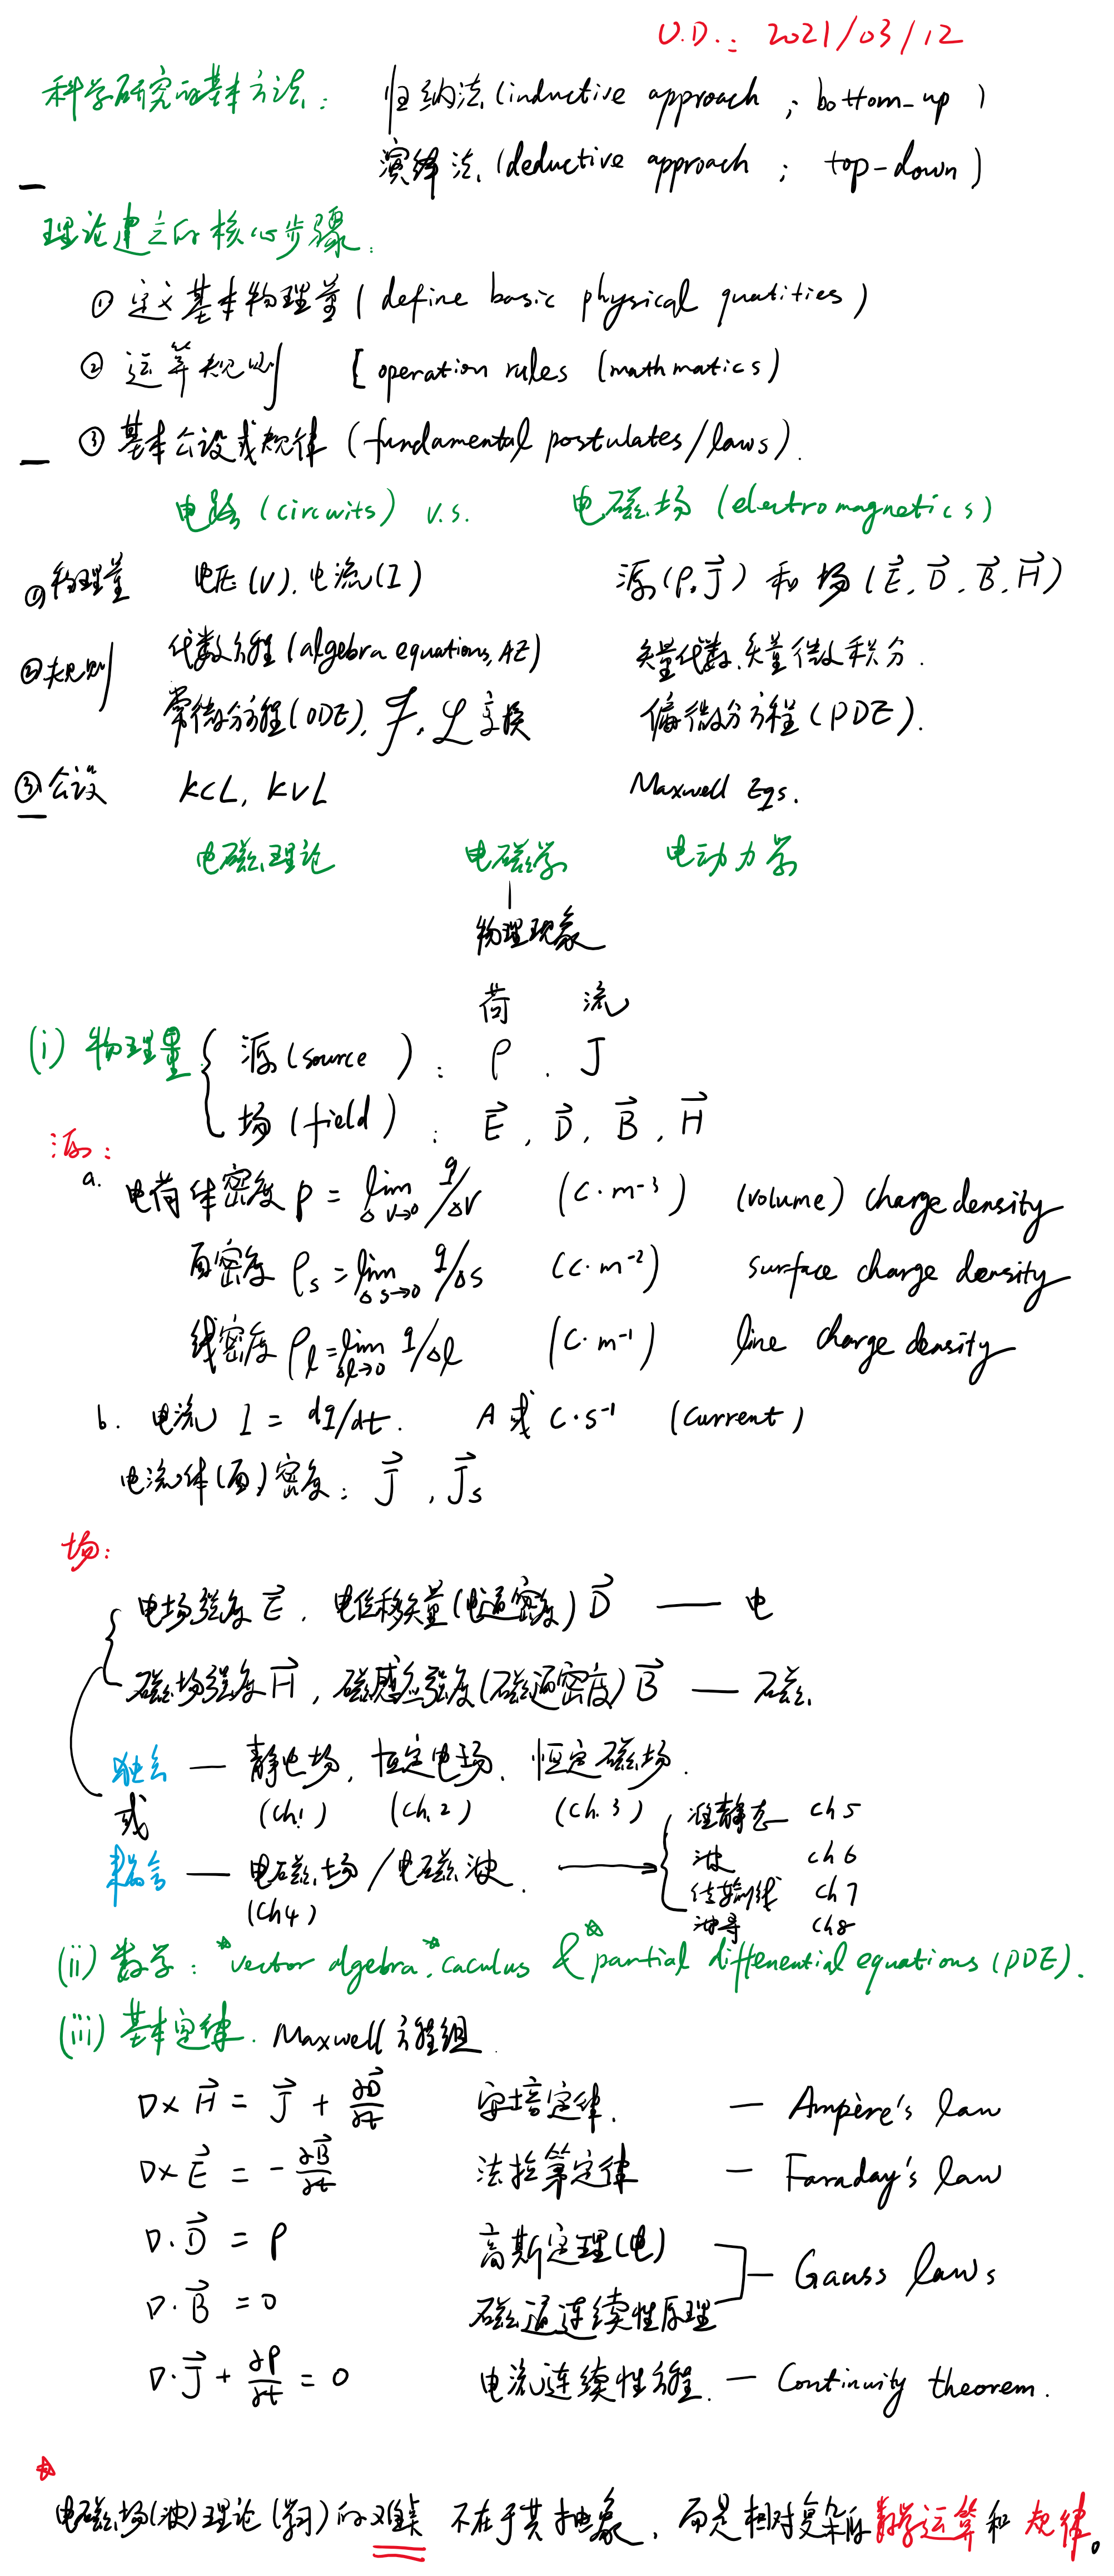 U.D.: 2021/03/12
科学研究的基本方法: 归纳法 (inductive approach ; bottom-up )
演绎法 (deductive approach ; top-down )
理论建立的核心步骤:
① 定义基本物理量 ( define basic physical quatities )
② 运算规则 [ operation rules (mathmatics)
③ 基本公设或规律 (fundamental postulates/laws).
电路 (circuits) v.s. 电磁场 (electromagnetics)
①物理量 电压 (V). 电流 (I) 源 (ρ, J⃗ ) 和 场 (E⃗, D⃗, B⃗, H⃗)
②规则 代数方程 (algebra equations, AE) 矢量代数、矢量微积分.
常微分方程 (ODE), ℱ, ℒ变换 偏微分方程 (PDE).
③公设 KCL, KVL Maxwell Eqs.
电磁理论 电磁学 电动力学
物理现象
荷 流
(i) 物理量 { 源 (source ) : ρ . J
场 (field) : E⃗, D⃗, B⃗, H⃗
源:
a. 电荷体密度 ρ = lim ΔV→0 q/ΔV (C·m⁻³) (volume) charge density
面密度 ρs = lim ΔS→0 q/ΔS (C·m⁻²) surface charge density
线密度 ρℓ = lim Δℓ→0 q/Δℓ (C·m⁻¹) line charge density
b. 电流 I = dq/dt. A 或 C·s⁻¹ (current)
电流体(面)密度: J⃗ , J⃗s
场:
电场强度 E⃗ , 电位移矢量(电通密度) D⃗ — 电
磁场强度 H⃗ , 磁感应强度(磁通密度) B⃗ — 磁
独立 — 静电场, 恒定电场、恒定磁场.
或 (Ch.1) (Ch.2) (Ch.3)
耦合 — 电磁场/电磁波. → { 准静态 ch5
(Ch4) 波 ch6
传输线 ch7
波导 ch8
(ii) 数学: ☆vector algebra, ☆caculus & ☆partial differential equations (PDE).
(iii) 基本定律. Maxwell 方程组
∇× H⃗ = J⃗ + ∂D⃗/∂t 安培定律. — Ampère's law
∇× E⃗ = - ∂B⃗/∂t 法拉第定律 — Faraday's law
∇· D⃗ = ρ 高斯定理(电)
∇· B⃗ = 0 磁通连续性原理 ] — Gauss laws
∇· J⃗ + ∂ρ/∂t = 0 电流连续性方程. — Continuity theorem.
☆
电磁场(波)理论(学习)的难点 不在于其抽象, 而是相对复杂的数学运算和 规律。